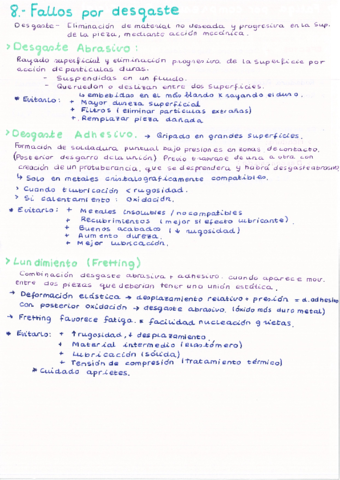 8.- Fallos por desgaste
Desgaste - Eliminación de material no deseada y progresiva en la sup.
de la pieza, mediante acción mecánica.
> Desgaste Abrasivo:
Rayado superficial y eliminación progresiva de la superficie por
acción de partículas duras.
- Suspendidas en un fluido.
- Que ruedan o deslizan entre dos superficies.
↳ embebidas en el más blando x rayando el duro.
* Evitarlo: + Mayor dureza superficial
+ Filtros (eliminar partículas extrañas)
+ Remplazar pieza dañada.
> Desgaste Adhesivo. → Gripado en grandes superficies.
Formación de soldadura puntual bajo presiones en zonas de contacto.
(Posterior desgarro de la unión) Previo trasvase de una a otra con
creación de un protuberancia, que se desprenderá y habrá desgaste abrasivo
↳ Solo en metales cristalográficamente compatibles.
> Cuando ↑ lubricación < rugosidad.
> Si calentamiento: Oxidación.
* Evitarlo: + Metales insolubles / no compatibles
+ Recubrimientos (mejor si efecto lubricante).
+ Buenos acabados (↓ rugosidad)
+ Aumento dureza.
+ Mejor lubricación.
> Lundimiento (Fretting)
Combinación desgaste abrasivo + adhesivo. cuando aparece mov.
entre dos piezas que deberían tener una unión estática.
→ Deformación elástica → desplazamiento relativo + presión = d. adhesivo
con posterior oxidación → desgaste abrasivo. (óxido más duro metal)
→ Fretting favorece fatiga. * facilidad nucleación grietas.
* Evitarlo: + ↑ rugosidad, ↓ desplazamiento.
+ Material intermedio (elastómero)
+ Lubricación (sólida)
+ Tensión de compresión (tratamiento térmico)
* Cuidado aprietes.